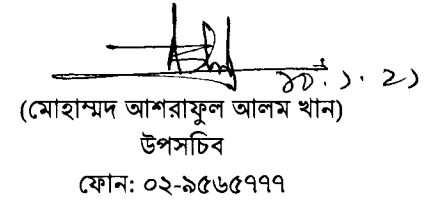 (মোহাম্মদ আশরাফুল আলম খান)
উপসচিব
ফোন: ০২-৯৫৬৫৭৭৭